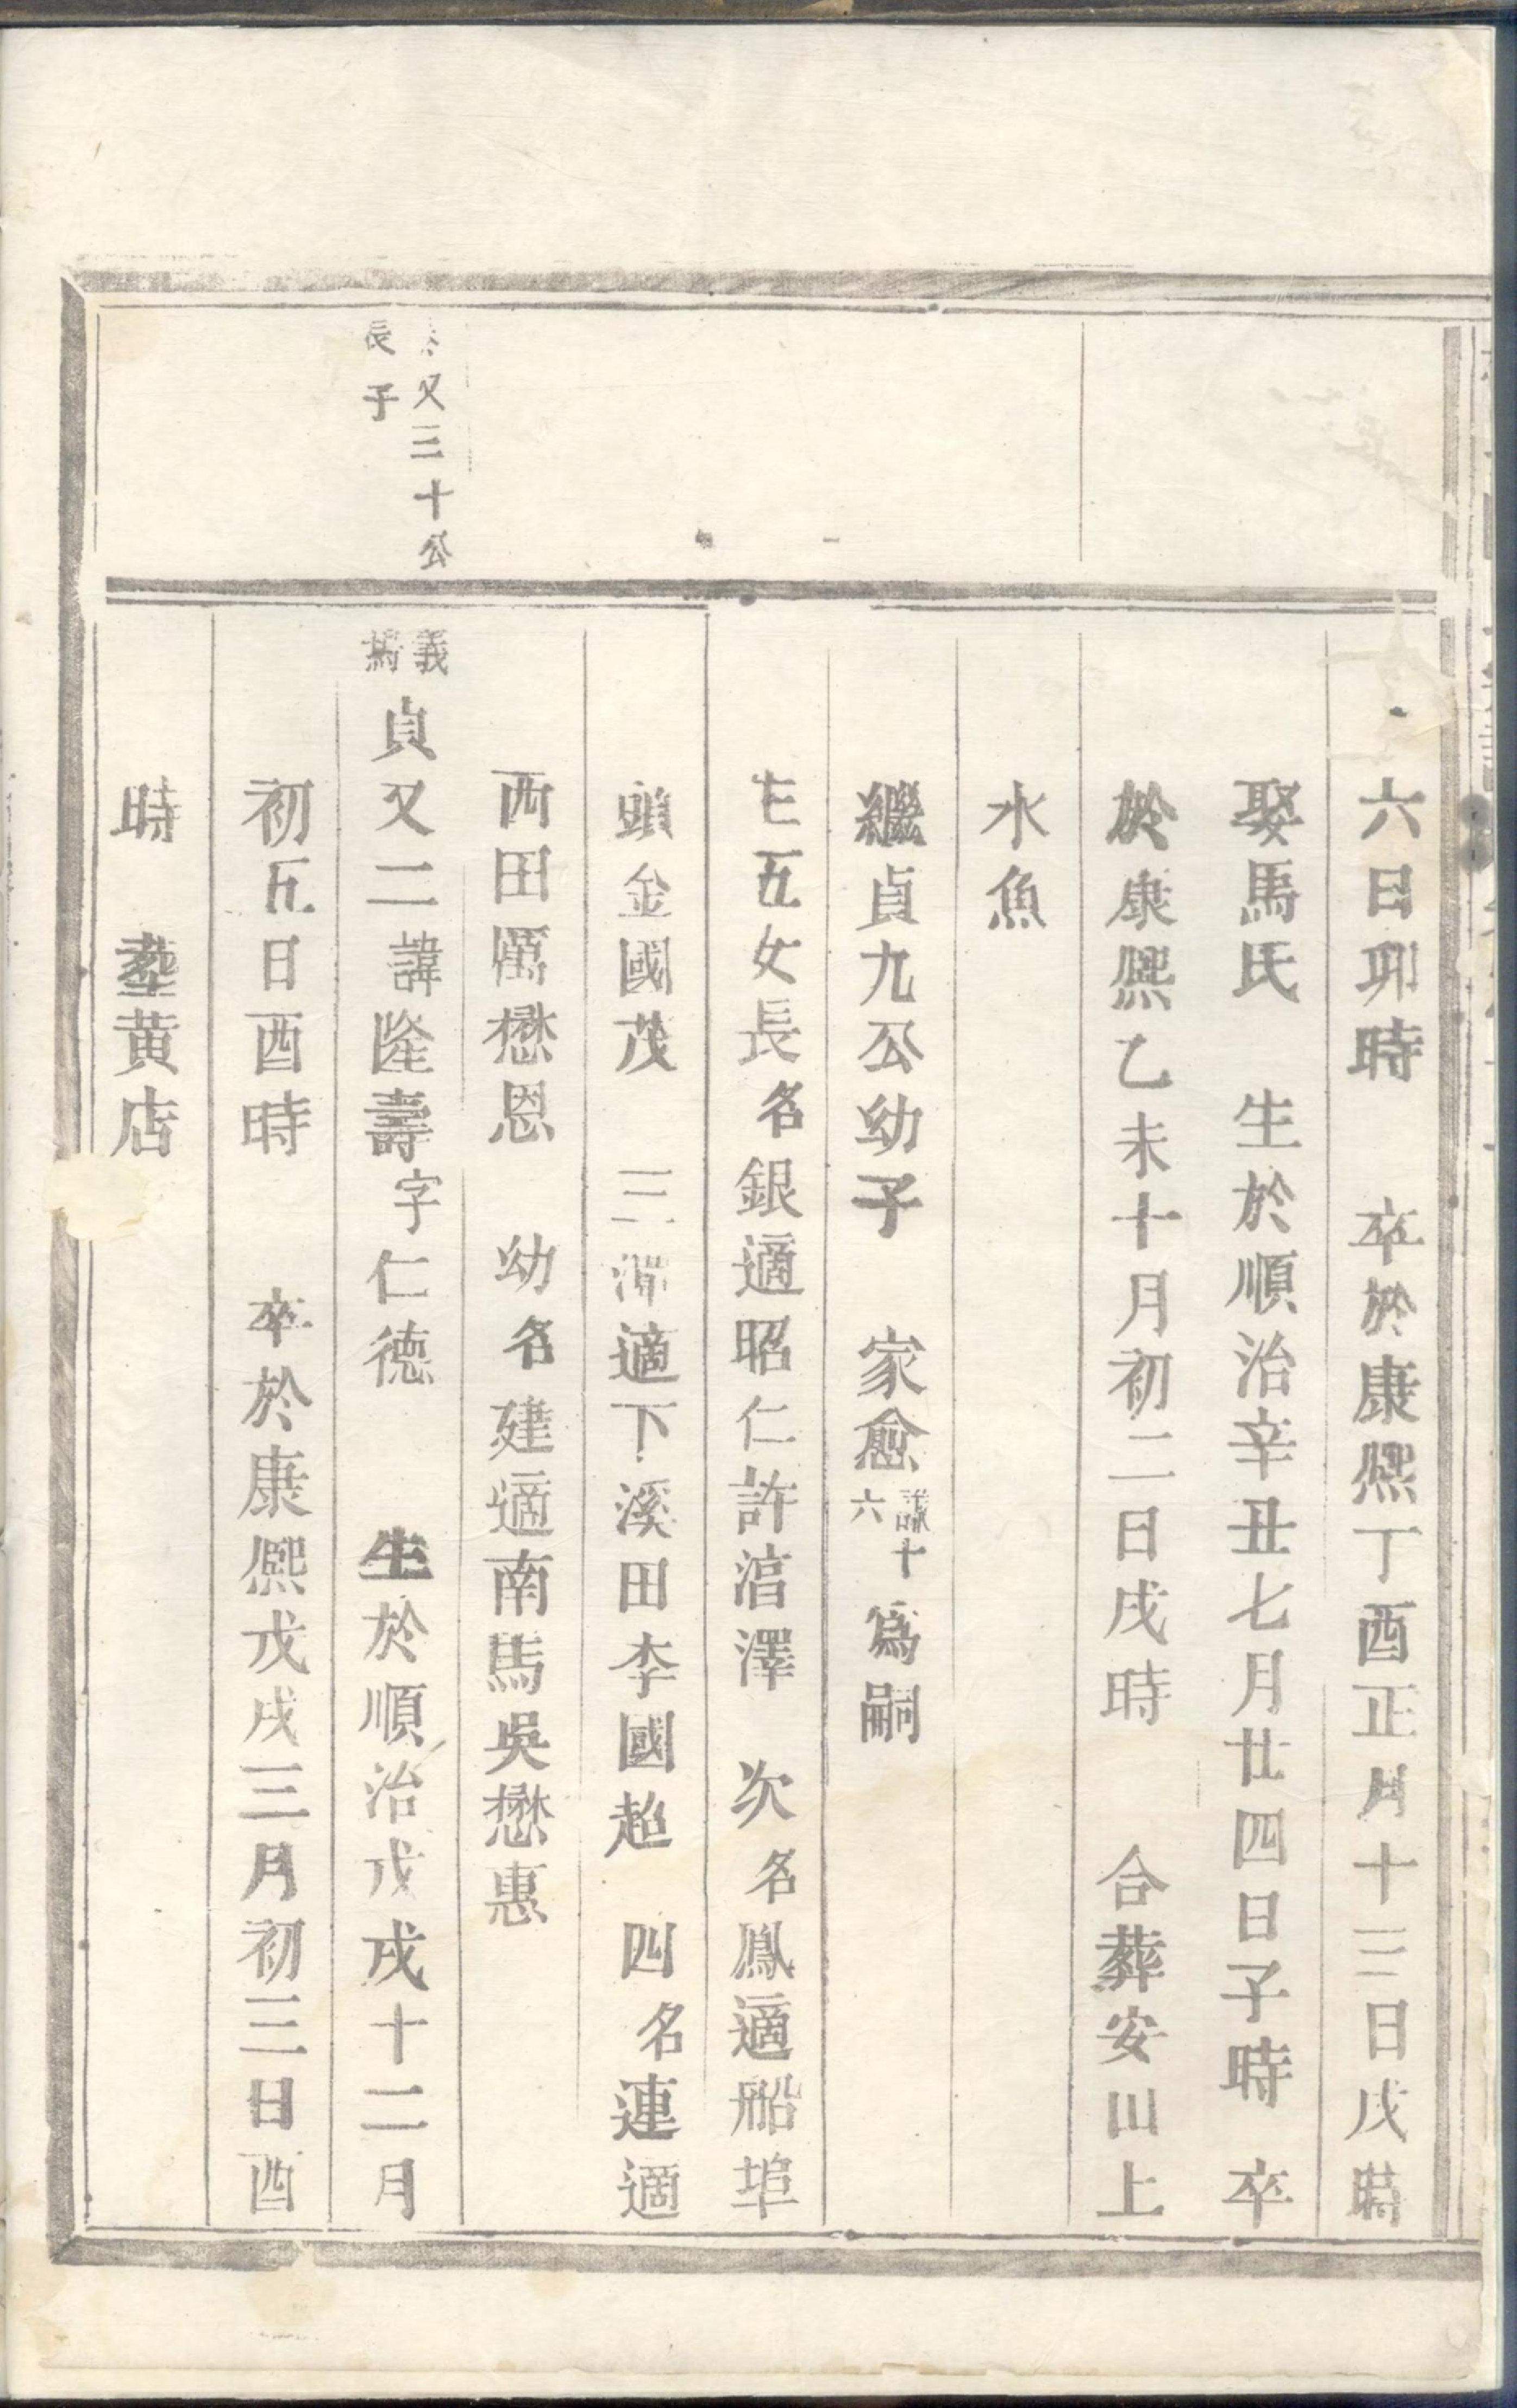 六日卯時　卒於康熙丁酉正月十三日戌時
娶馬氏　生於順治辛丑七月廿四日子時　卒
於康熙乙未十月初二日戌時　合葬安山上
水魚
繼貞九公幼子　家愈議十六爲嗣
生五女長名銀適昭仁許涫澤　次名鳳適船埠
頭金國茂　三 適下溪田李國超　四名連適
西田厲懋恩　幼名建適南馬吳懋惠
又三十公長子
義 貞又二諱隆壽字仁德　生於順治戊戌十二月
初五日酉時　卒於康熙戊戌三月初三日酉
時　塟黄店